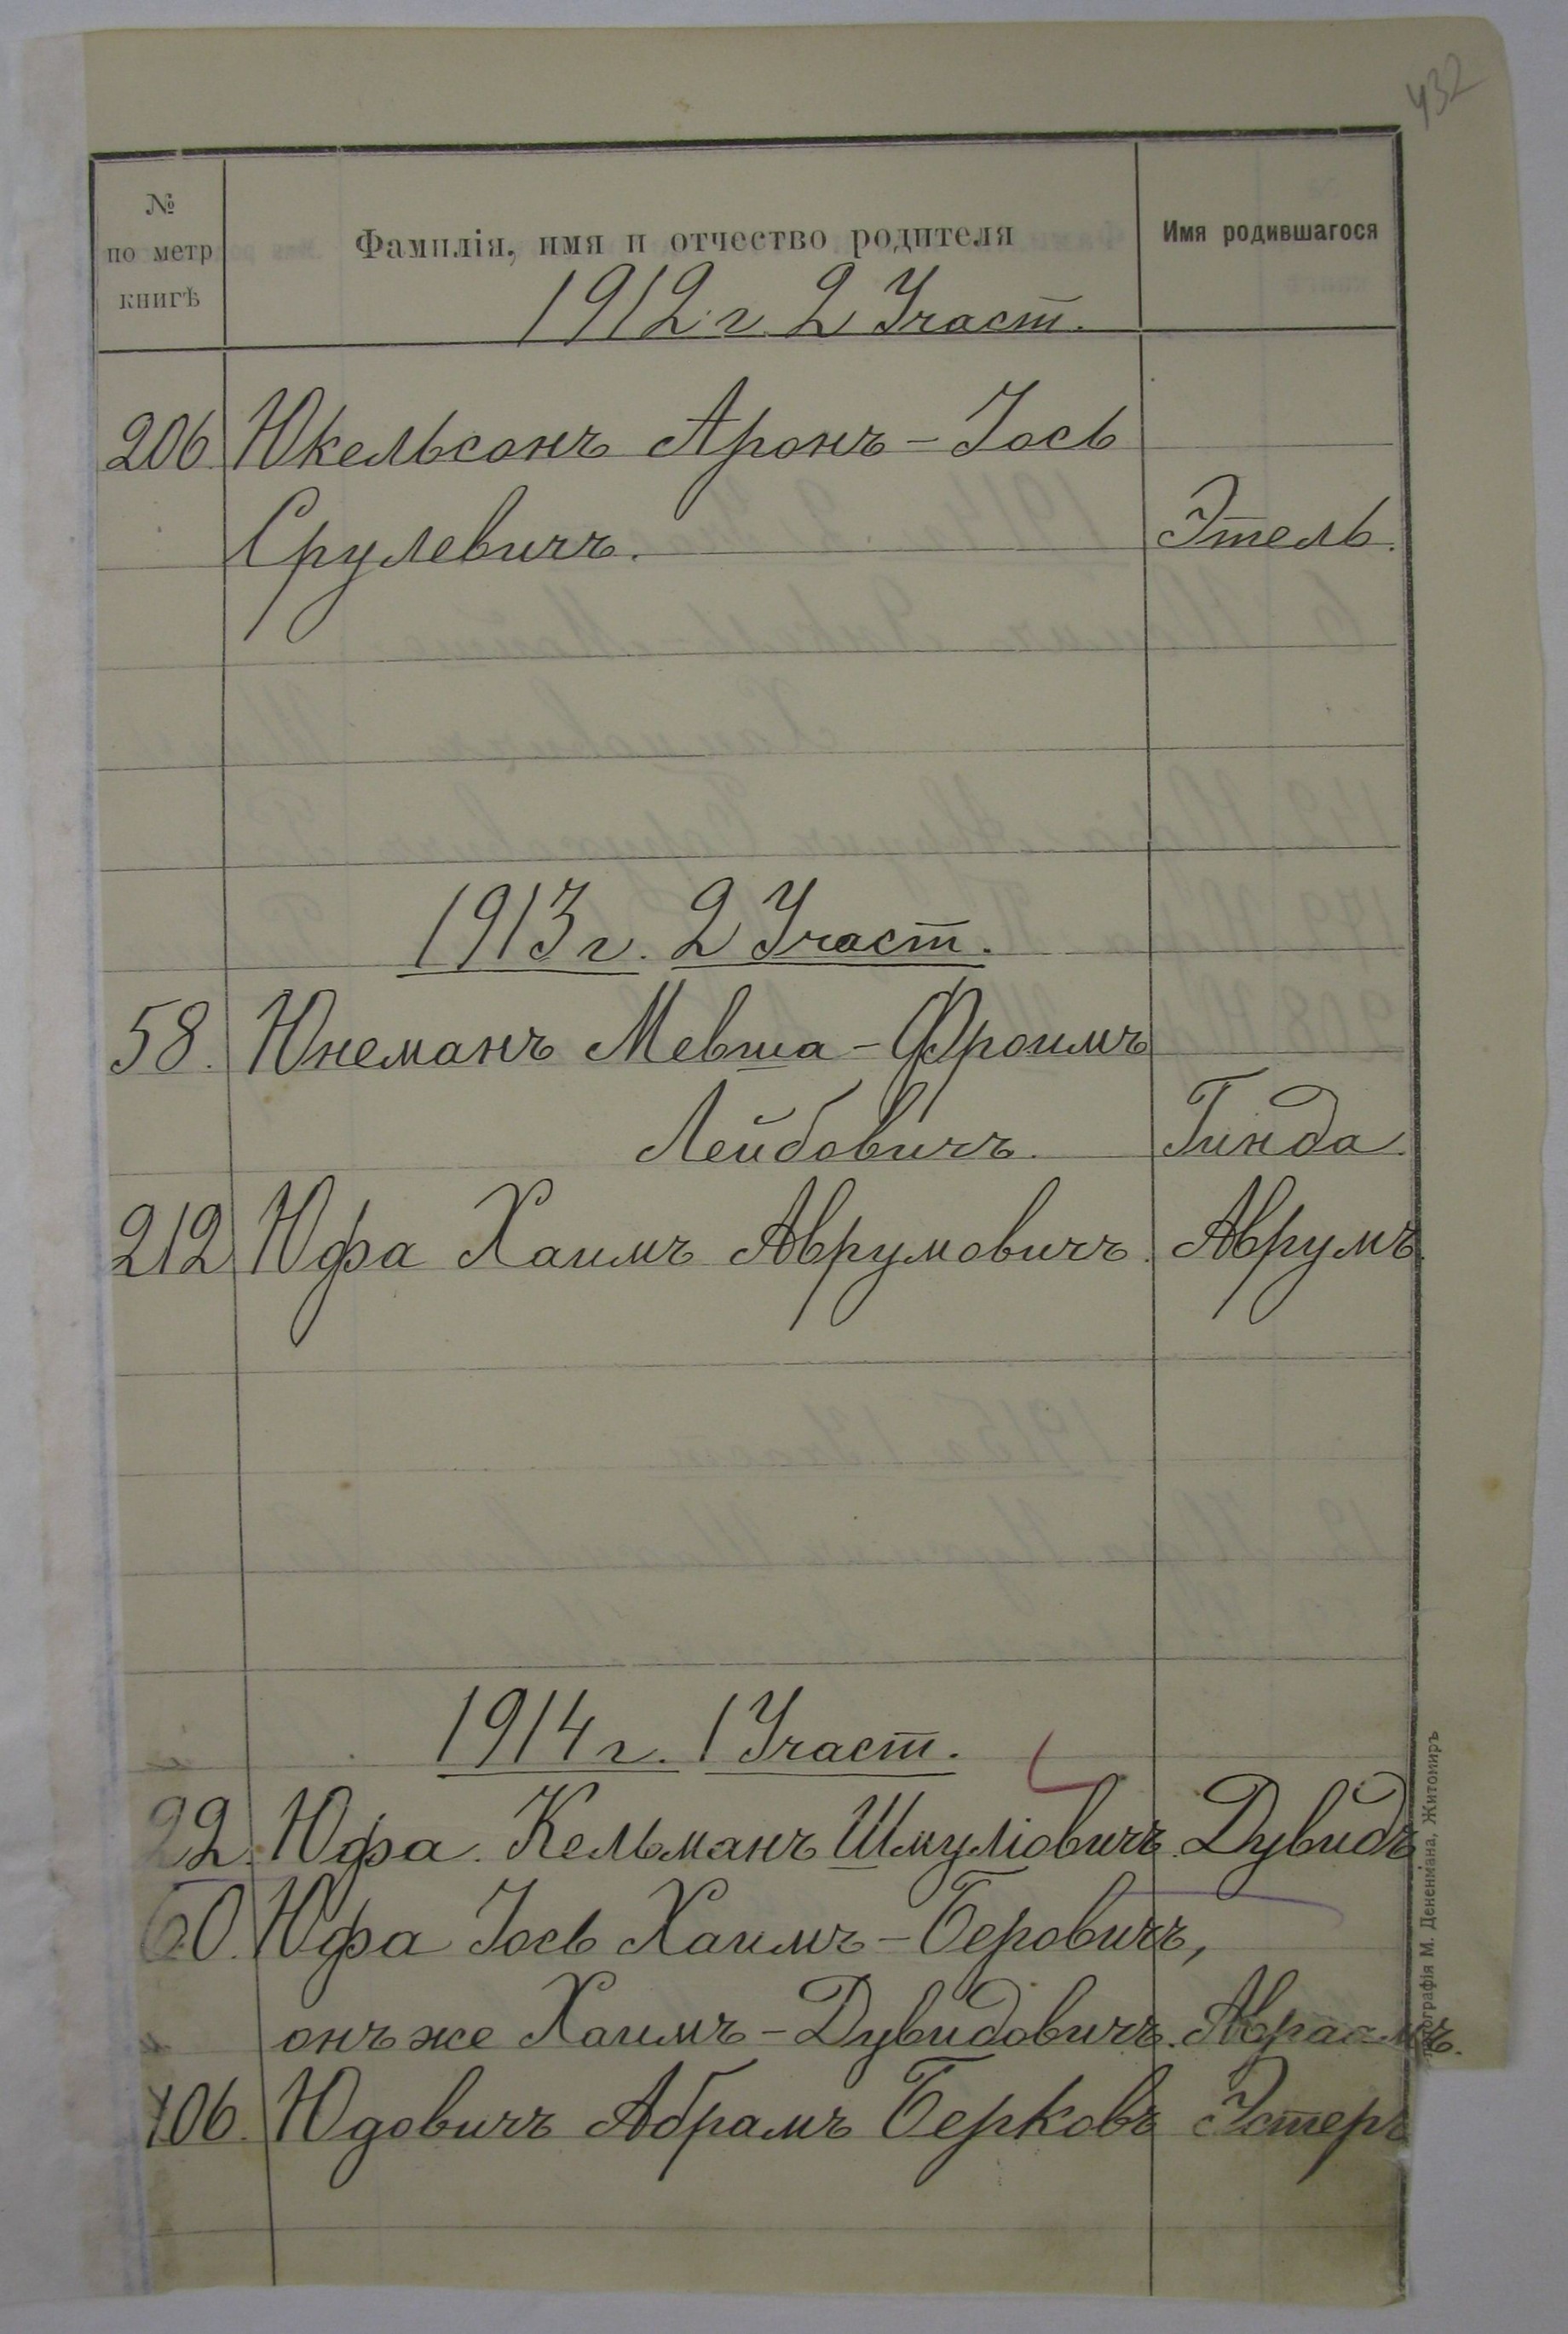 432
№ по метр книгѣ
Фамилія, имя и отчество родителя
Имя родившагося
1912 г. 2 Участ.
206 Юкельсонъ Аронъ-Іось
Срулевичъ. Этель.
1913 г. 2 Участ.
58. Юнеманъ Мевша-Фроимъ
Лейбовичъ. Гинда.
212 Юфа Хаимъ Аврумовичъ. Аврумъ.
1914 г. 1 Участ.
22. Юфа. Кельманъ Шмуліовичъ. Дувидъ
60. Юфа Іось Хаимъ-Беровичъ,
онъ же Хаимъ-Дувидовичъ. Авраамъ.
106. Юдовичъ Абрамъ Берковъ Эстеръ
Типографія М. Дененмана, Житомиръ